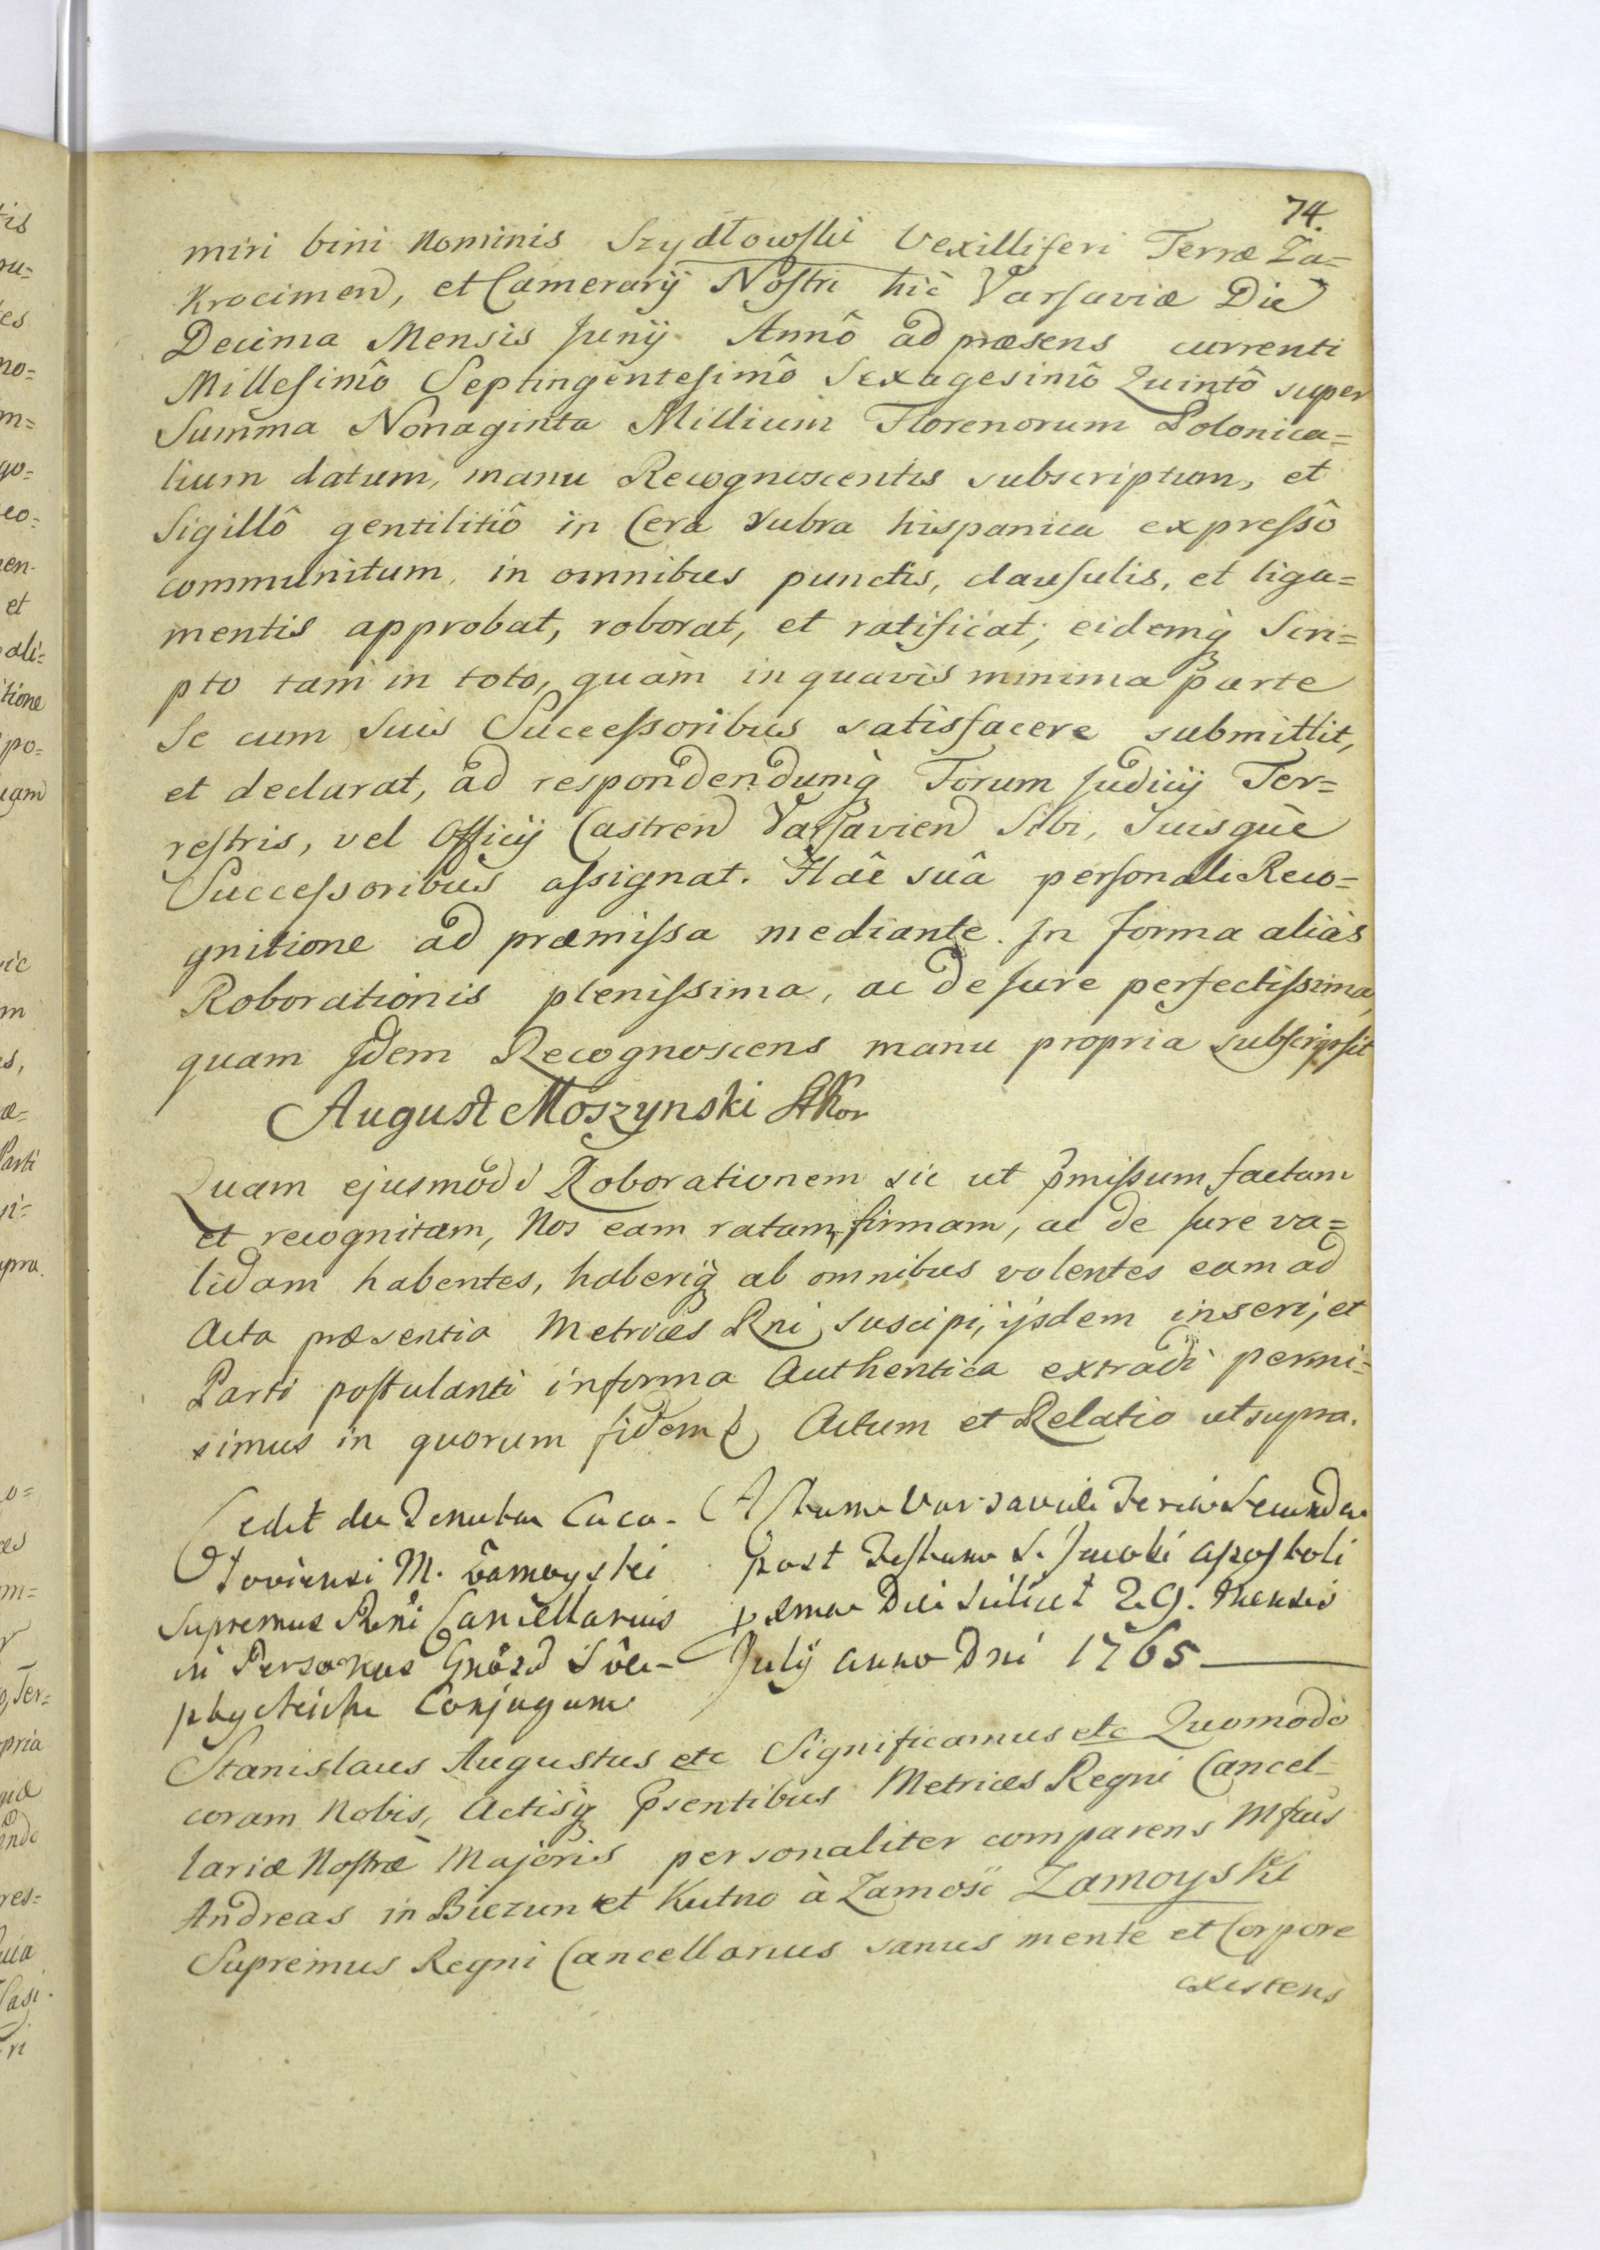 74.
miri bini Nominis Szydłowski Vexilliferi Terræ Za=
krocimen, et Camerarij Nostri hic Varsaviæ Die
Decima Mensis Junij Annô ad præsens currenti
Millesimô Septingentesimô Sexagesimô Quintô super
Summa Nonaginta Millium Florenorum Polonica=
lium datum, manu Recognoscentis subscriptum, et
Sigillô gentilitiô in Cera rubra hispanica expressô
communitum, in omnibus punctis, clausulis, et liga=
mentis approbat, roborat, et ratificat; eidemq̃ Scri=
pto tam in toto, quàm in quavis minima parte
Se cum Suis Successoribus satisfacere submittit,
et declarat, ad respondendumq̃ Forum Judicij Ter=
restris, vel Officij Castren Varsavien Sibi, Suisquè
Successoribus assignat. Hâc suâ personali Reco=
gnitione ad præmissa mediante. In forma aliàs
Roborationis plenissima, ac de Jure perfectissima,
quam Idem Recognoscens manu propria subscripsit
August Moszynski StKor
Quam ejusmodi Roborationem sic ut p̃missum factam
et recognitam, Nos eam ratam, firmam, ac de Jure va=
lidam habentes, haberiq̃ ab omnibus volentes eam ad
Acta præsentia Metrices Rni suscipi, ijsdem inseri, et
Parti postulanti in forma Authentica extradi permi=
simus in quorum fidem Actum et Relatio ut supra.
Cedit de Tenuta
M. Zamoyski
Supremus Rni Cancellarius
in Personas
Conjugum
Actum Varsaviæ Feria Secunda
post Festum S. Jacobi Apostoli
Die Scilicet 29. Mensis
Julij Anno Dni 1765
Stanislaus Augustus etc Significamus etc Quomodo
coram Nobis, Actisq̃ p̃sentibus Metrices Regni Cancel=
lariæ Nostræ Majoris personaliter comparens Mfcus
Andreas in Biezun et Kutno à Zamość Zamoyski
Supremus Regni Cancellarius sanus mente et Corpore
existens